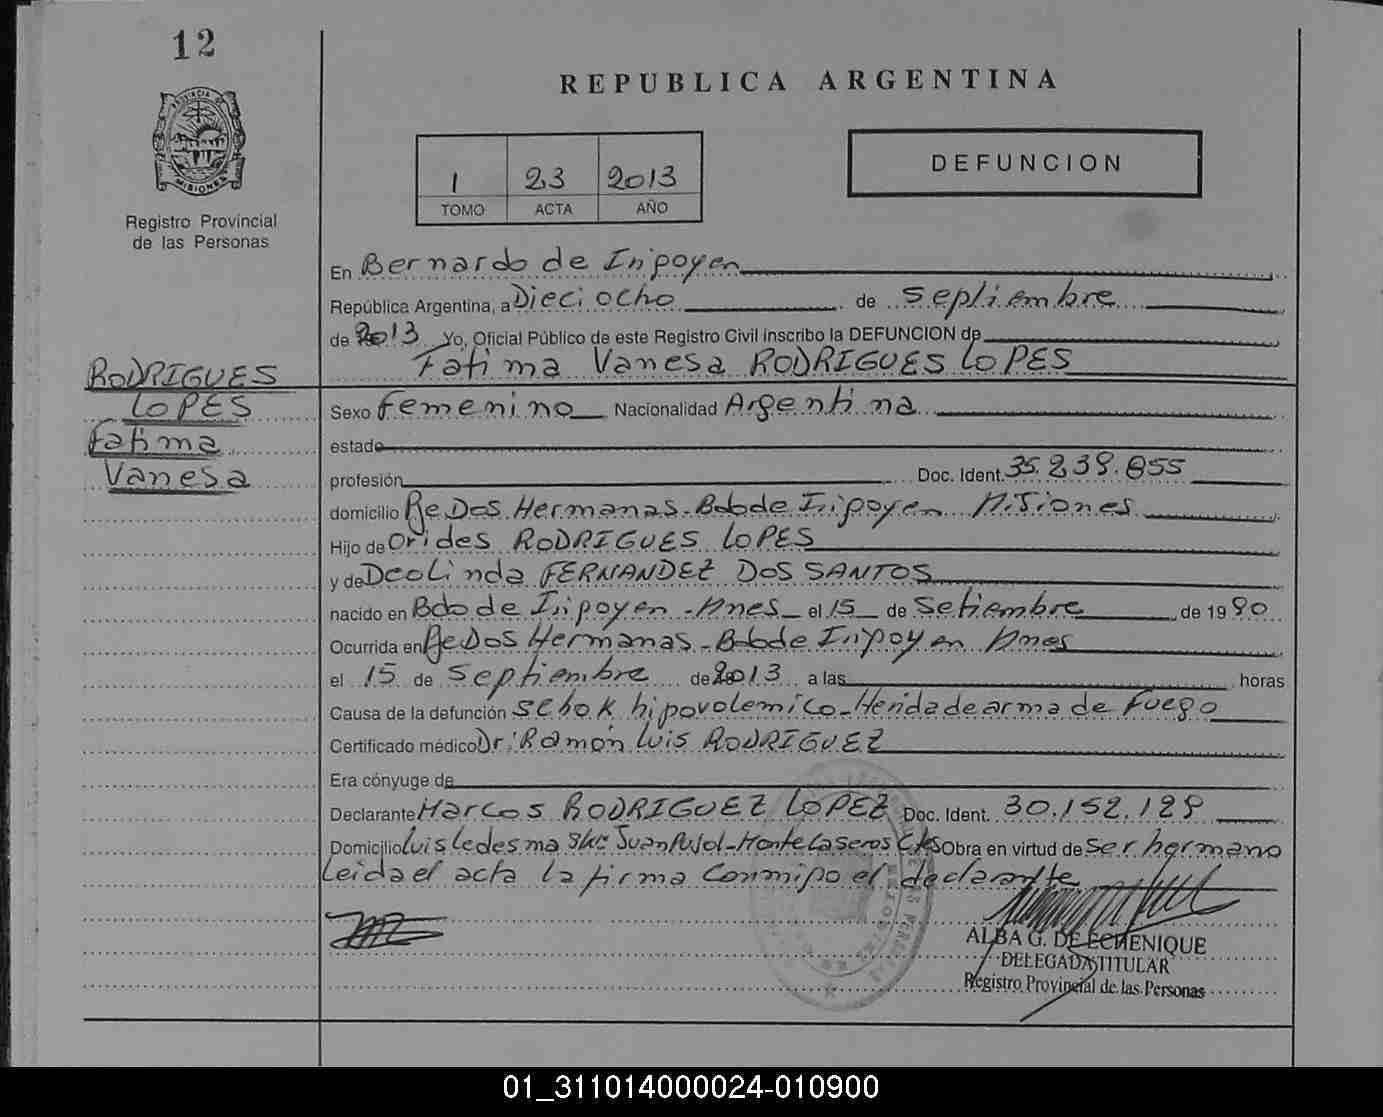 12
PROVINCIA DE
MISIONES
Registro Provincial
de las Personas
RODRIGUES
LOPES
Fatima
Vanesa
REPUBLICA ARGENTINA
1 23 2013
TOMO ACTA AÑO
DEFUNCION
En Bernardo de Iripoyen
República Argentina, a Dieciocho de septiembre
de 2013 Yo, Oficial Público de este Registro Civil inscribo la DEFUNCION de
Fatima Vanesa RODRIGUES LOPES
Sexo femenino Nacionalidad Argentina
estado
profesión Doc. Ident. 35.239.855
domicilio Dos Hermanas - Bdo de Iripoyen Misiones
Hijo de Orides RODRIGUES LOPES
y de Deolinda FERNANDEZ DOS SANTOS
nacido en Bdo de Iripoyen - Mnes el 15 de Setiembre de 1990
Ocurrida en Dos Hermanas - Bdo de Iripoyen Mnes
el 15 de septiembre de 2013 a las horas
Causa de la defunción schok hipovolemico - Herida de arma de fuego
Certificado médico Dr. Ramón Luis RODRIGUEZ
Era cónyuge de
Declarante Marcos RODRIGUEZ LOPEZ Doc. Ident. 30.152.129
Domicilio Luis Ledesma Juan Pujol - Monte Caseros Obra en virtud de ser hermano
Leida el acta la firma conmipo el declarante
ALBA G. DE ECHENIQUE
DELEGADA TITULAR
Registro Provincial de las Personas
01_311014000024-010900